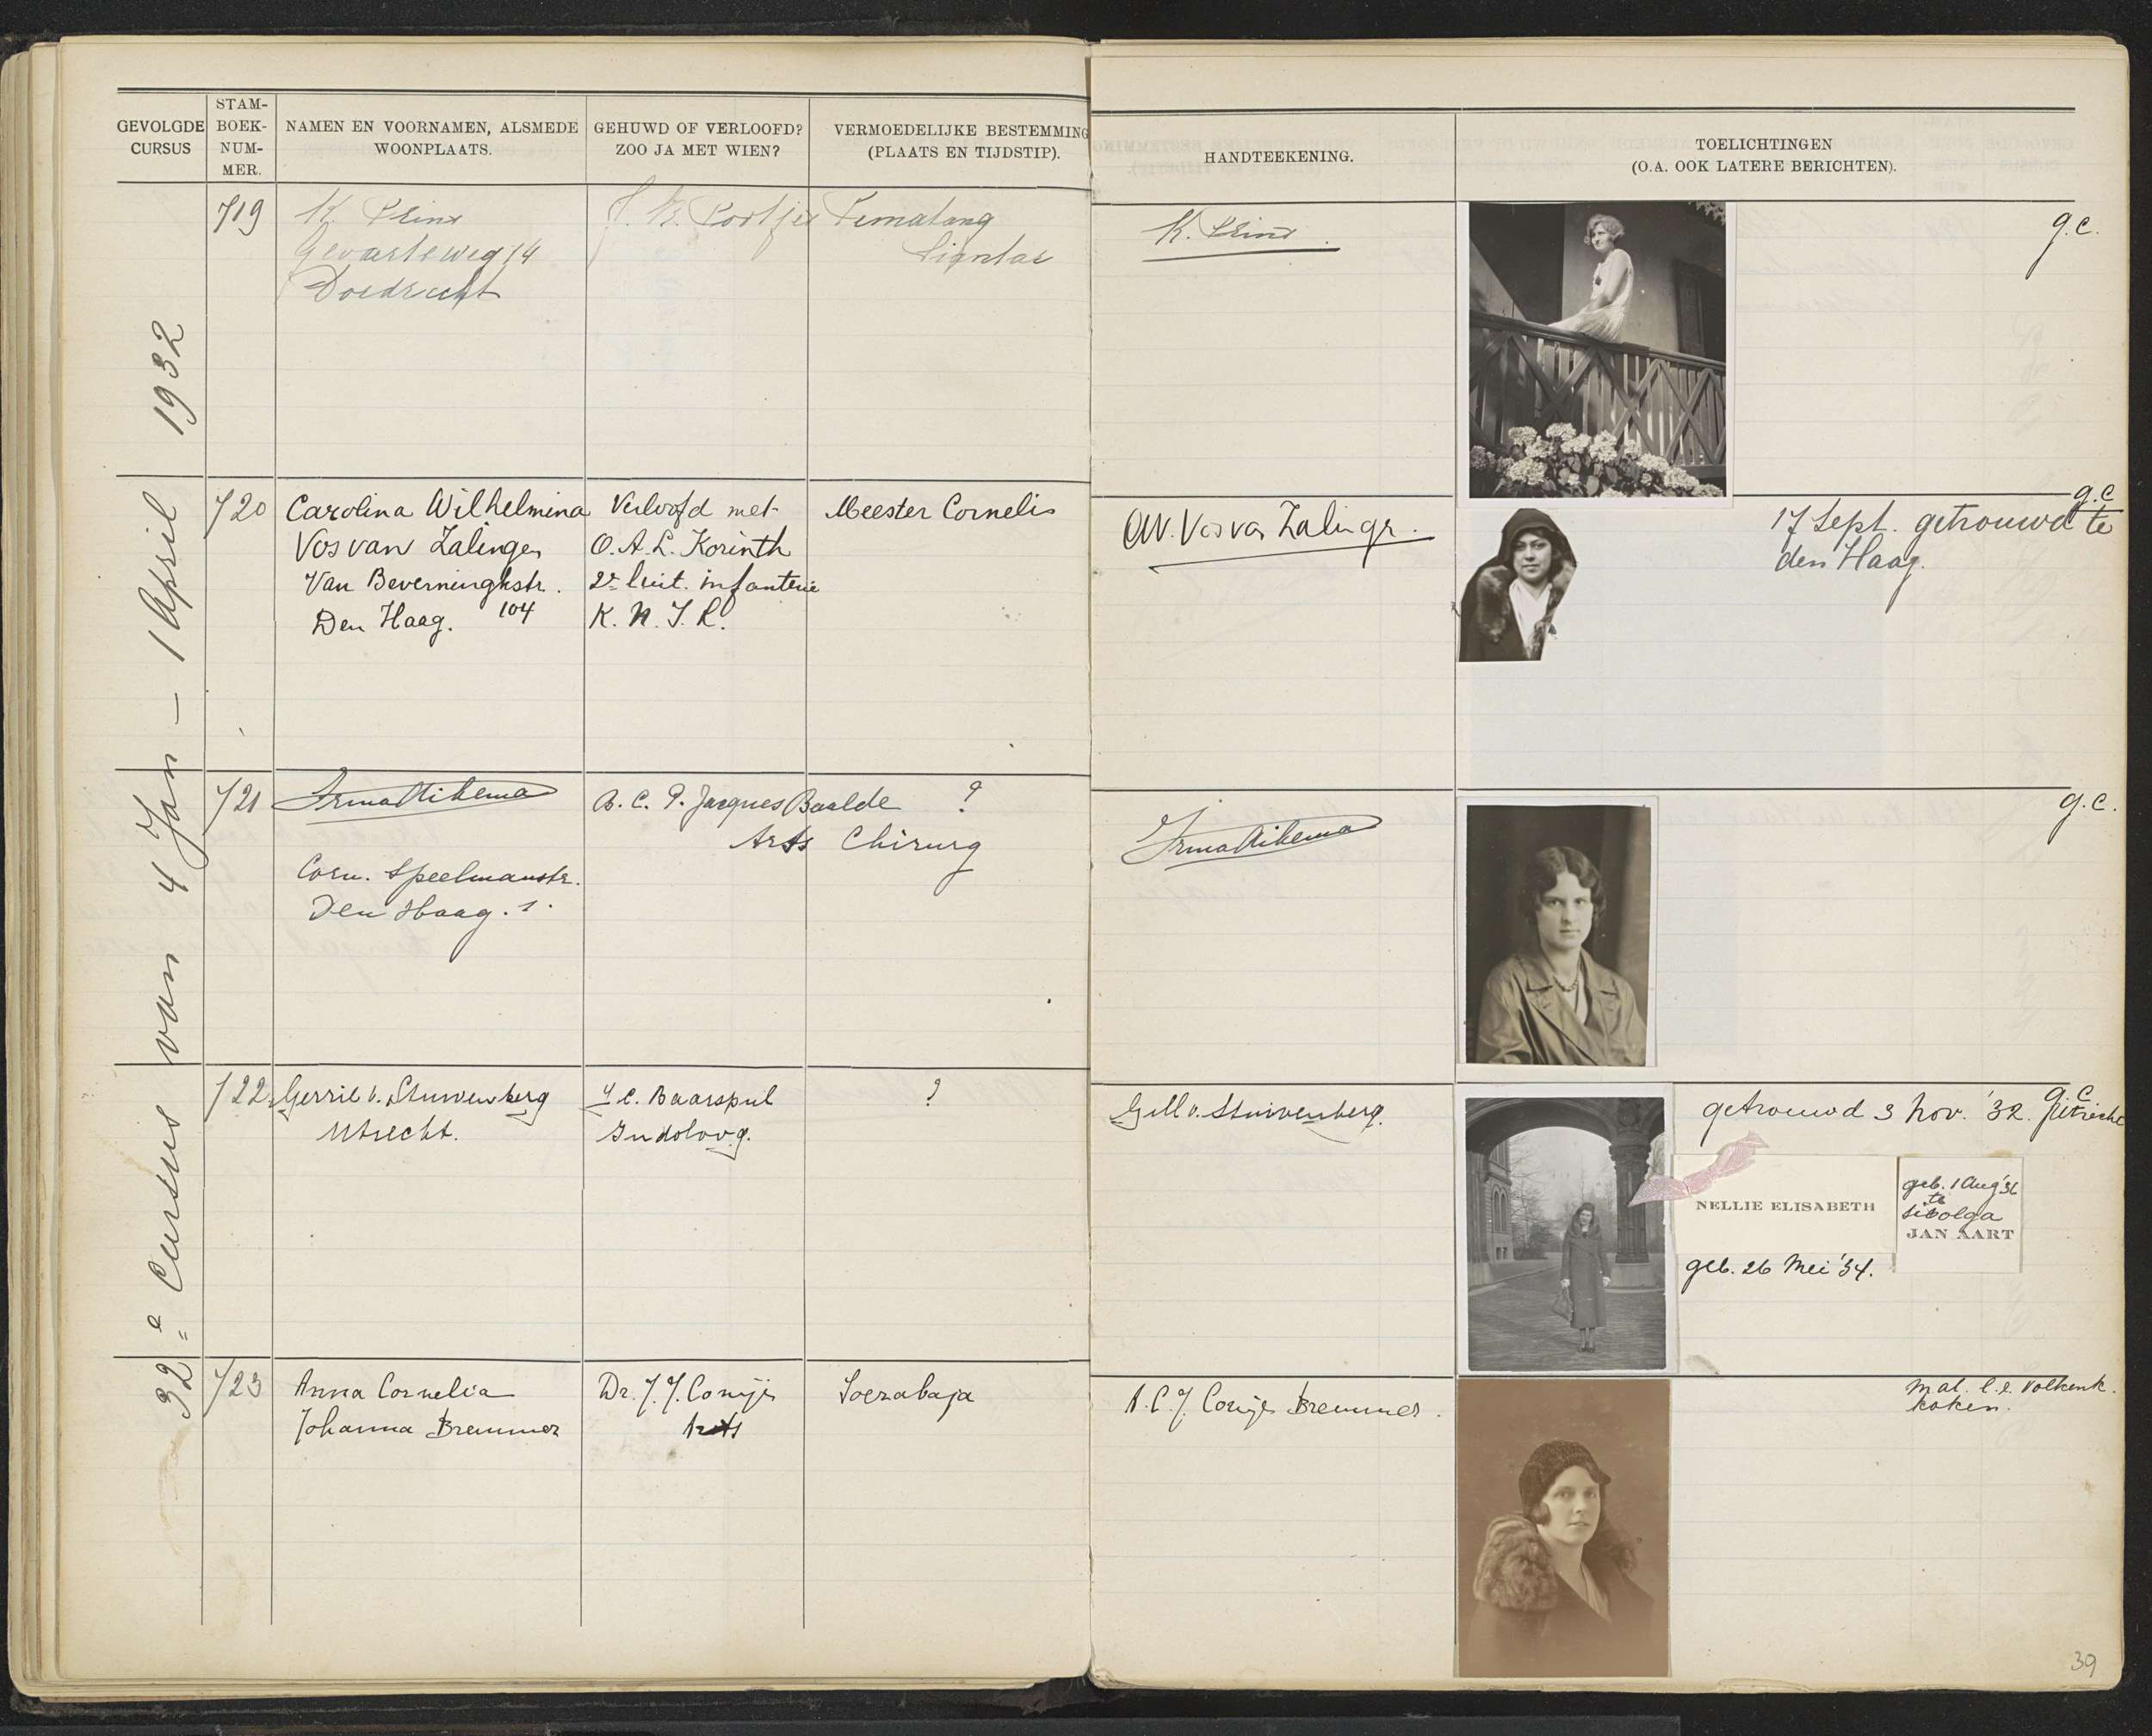 GEVOLGDE
CURSUS
STAM-
BOEK-
NUM-
MER.
NAMEN EN VOORNAMEN, ALSMEDE
WOONPLAATS.
GEHUWD OF VERLOOFD?
ZOO JA MET WIEN?
VERMOEDELIJKE BESTEMMING
(PLAATS EN TIJDSTIP).
HANDTEEKENING.
TOELICHTINGEN
(O.A. OOK LATERE BERICHTEN).
32e Cursus van 4 Jan – 1 April 1932
719
K. Prins
Gevaertsweg 14
Dordrecht
Pematang
Siantar
K. Prins.
g.c.
720
Carolina Wilhelmina
Vos van Zalingen
Van Beverninghstr.
104
Den Haag.
Verloofd met
O.A.L. Korinth
2e luit. infanterie
K.N.I.L.
Meester Cornelis
CW. Vos van Zalinge.
g.c
17 Sept. getrouwd te
den Haag.
721
Irma Aikema
Corn. Speelmanstr.
Den Haag. 1.
B.C.P. Jacques Baalde
Arts Chirurg
?
Irma Aikema
g.c.
722
Gerrie v. Stuivenberg
Utrecht.
J.C. Baarspul
Indoloog.
?
Gell v. Stuivenberg.
g.c
getrouwd 3 Nov. '32. Utrecht
NELLIE ELISABETH
geb. 26 Mei '34.
geb. 1 Aug '36
te
Sibolga
JAN AART
723
Anna Cornelia
Johanna Bremmer
Dr. J.J. Conijn
Arts
Soerabaja
A.C.J. Bremmer.
mal. l.e. Volkenk.
koken.
39